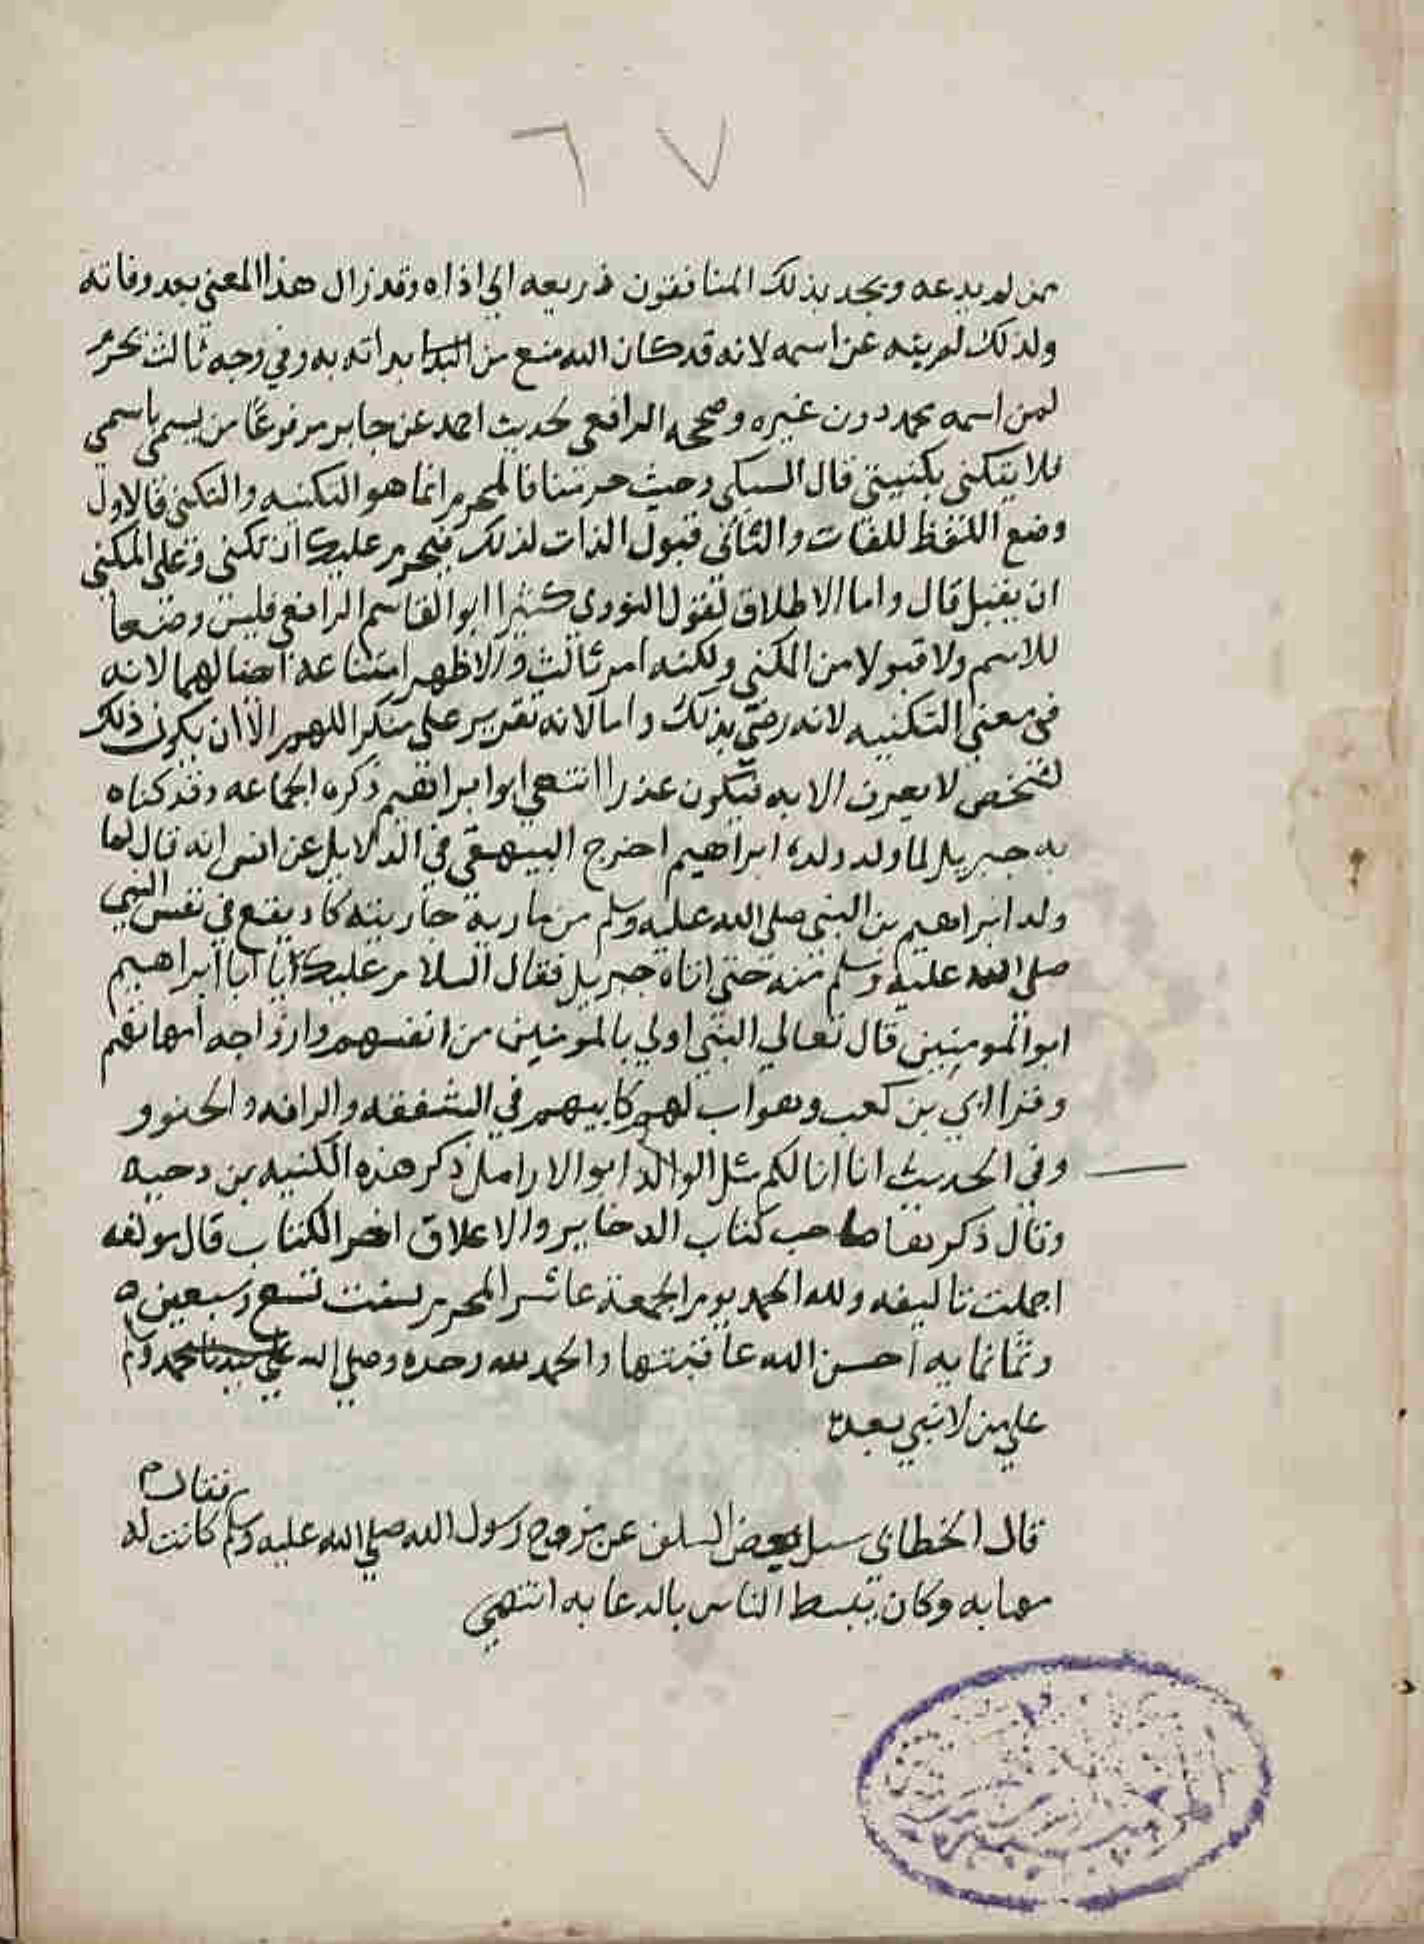 ٦٧
ممن لم يدعه ويجد بذلك المنافقون ذريعه الي اذاه وقد زال هذا المعني بعد وفاته
ولذلك لم ينه عن اسمه لانه قد كان الله منع من الندا به وفي وجه ثالث تحرم
لمن اسمه محمد دون غيره وصححه الرافعي لحديث احمد عن جابر مرفوعا من يسمي باسمي
فلا يتكني بكنيتي قال السبكي وحيث حرمنا فالمحرم انما هو التكنيه والتكني فالاول
وضع اللفظ للذات والثاني قبول الذات لذلك فيحرم عليك ان تكني وعلي المكني
ان يقبل قال واما الاطلاق كقول النووي كثيرا ابو القاسم الرافعي فليس وضعا
للاسم ولا قبولا من المكني ولكنه امر ثالث والاظهر امتناعه لانه
في معني التكنيه لانه رضي بذلك واما لانه تقرير علي منكر اللهم الا ان يكون ذلك
لشخص لا يعرف الا به فيكون عذرا انتهي ابو ابراهيم ذكره الجماعه وقد كناه
به جبريل لما ولد ولده ابراهيم اخرج البيهقي في الدلايل عن انس انه قال لما
ولد ابراهيم بن النبي صلي الله عليه وسلم من مارية جاريته كاد يقع في نفس النبي
صلي الله عليه وسلم منه حتي اتاه جبريل فقال السلام عليك يا ابا ابراهيم
ابو المومنين قال تعالي النبي اولي بالمومنين من انفسهم وازواجه امهاتهم
وقرا ابي بن كعب وهو اب لهم كابيهم في الشفقه والرافه والحنوو
وفي الحديث انا انا لكم مثل الوالد ابو الارامل ذكر هذه الكنيه بن دحيه
وقال ذكرها صاحب كتاب الدخاير والاعلاق اخر الكتاب قال مولفه
اجملت تاليفه ولله الحمد يوم الجمعة عاشر المحرم سنت تسع وسبعين
وثمانمايه احسن الله عاقبتها والحمد لله وحده وصلي الله علي سيدنا محمد وم
علي من لا نبي بعده
فقال م
قال الخطابي سيل بعض السلف عن مزوح رسول الله صلي الله عليه وسلم كانت له
مهابه وكان يبسط الناس بالدعابه انتهي